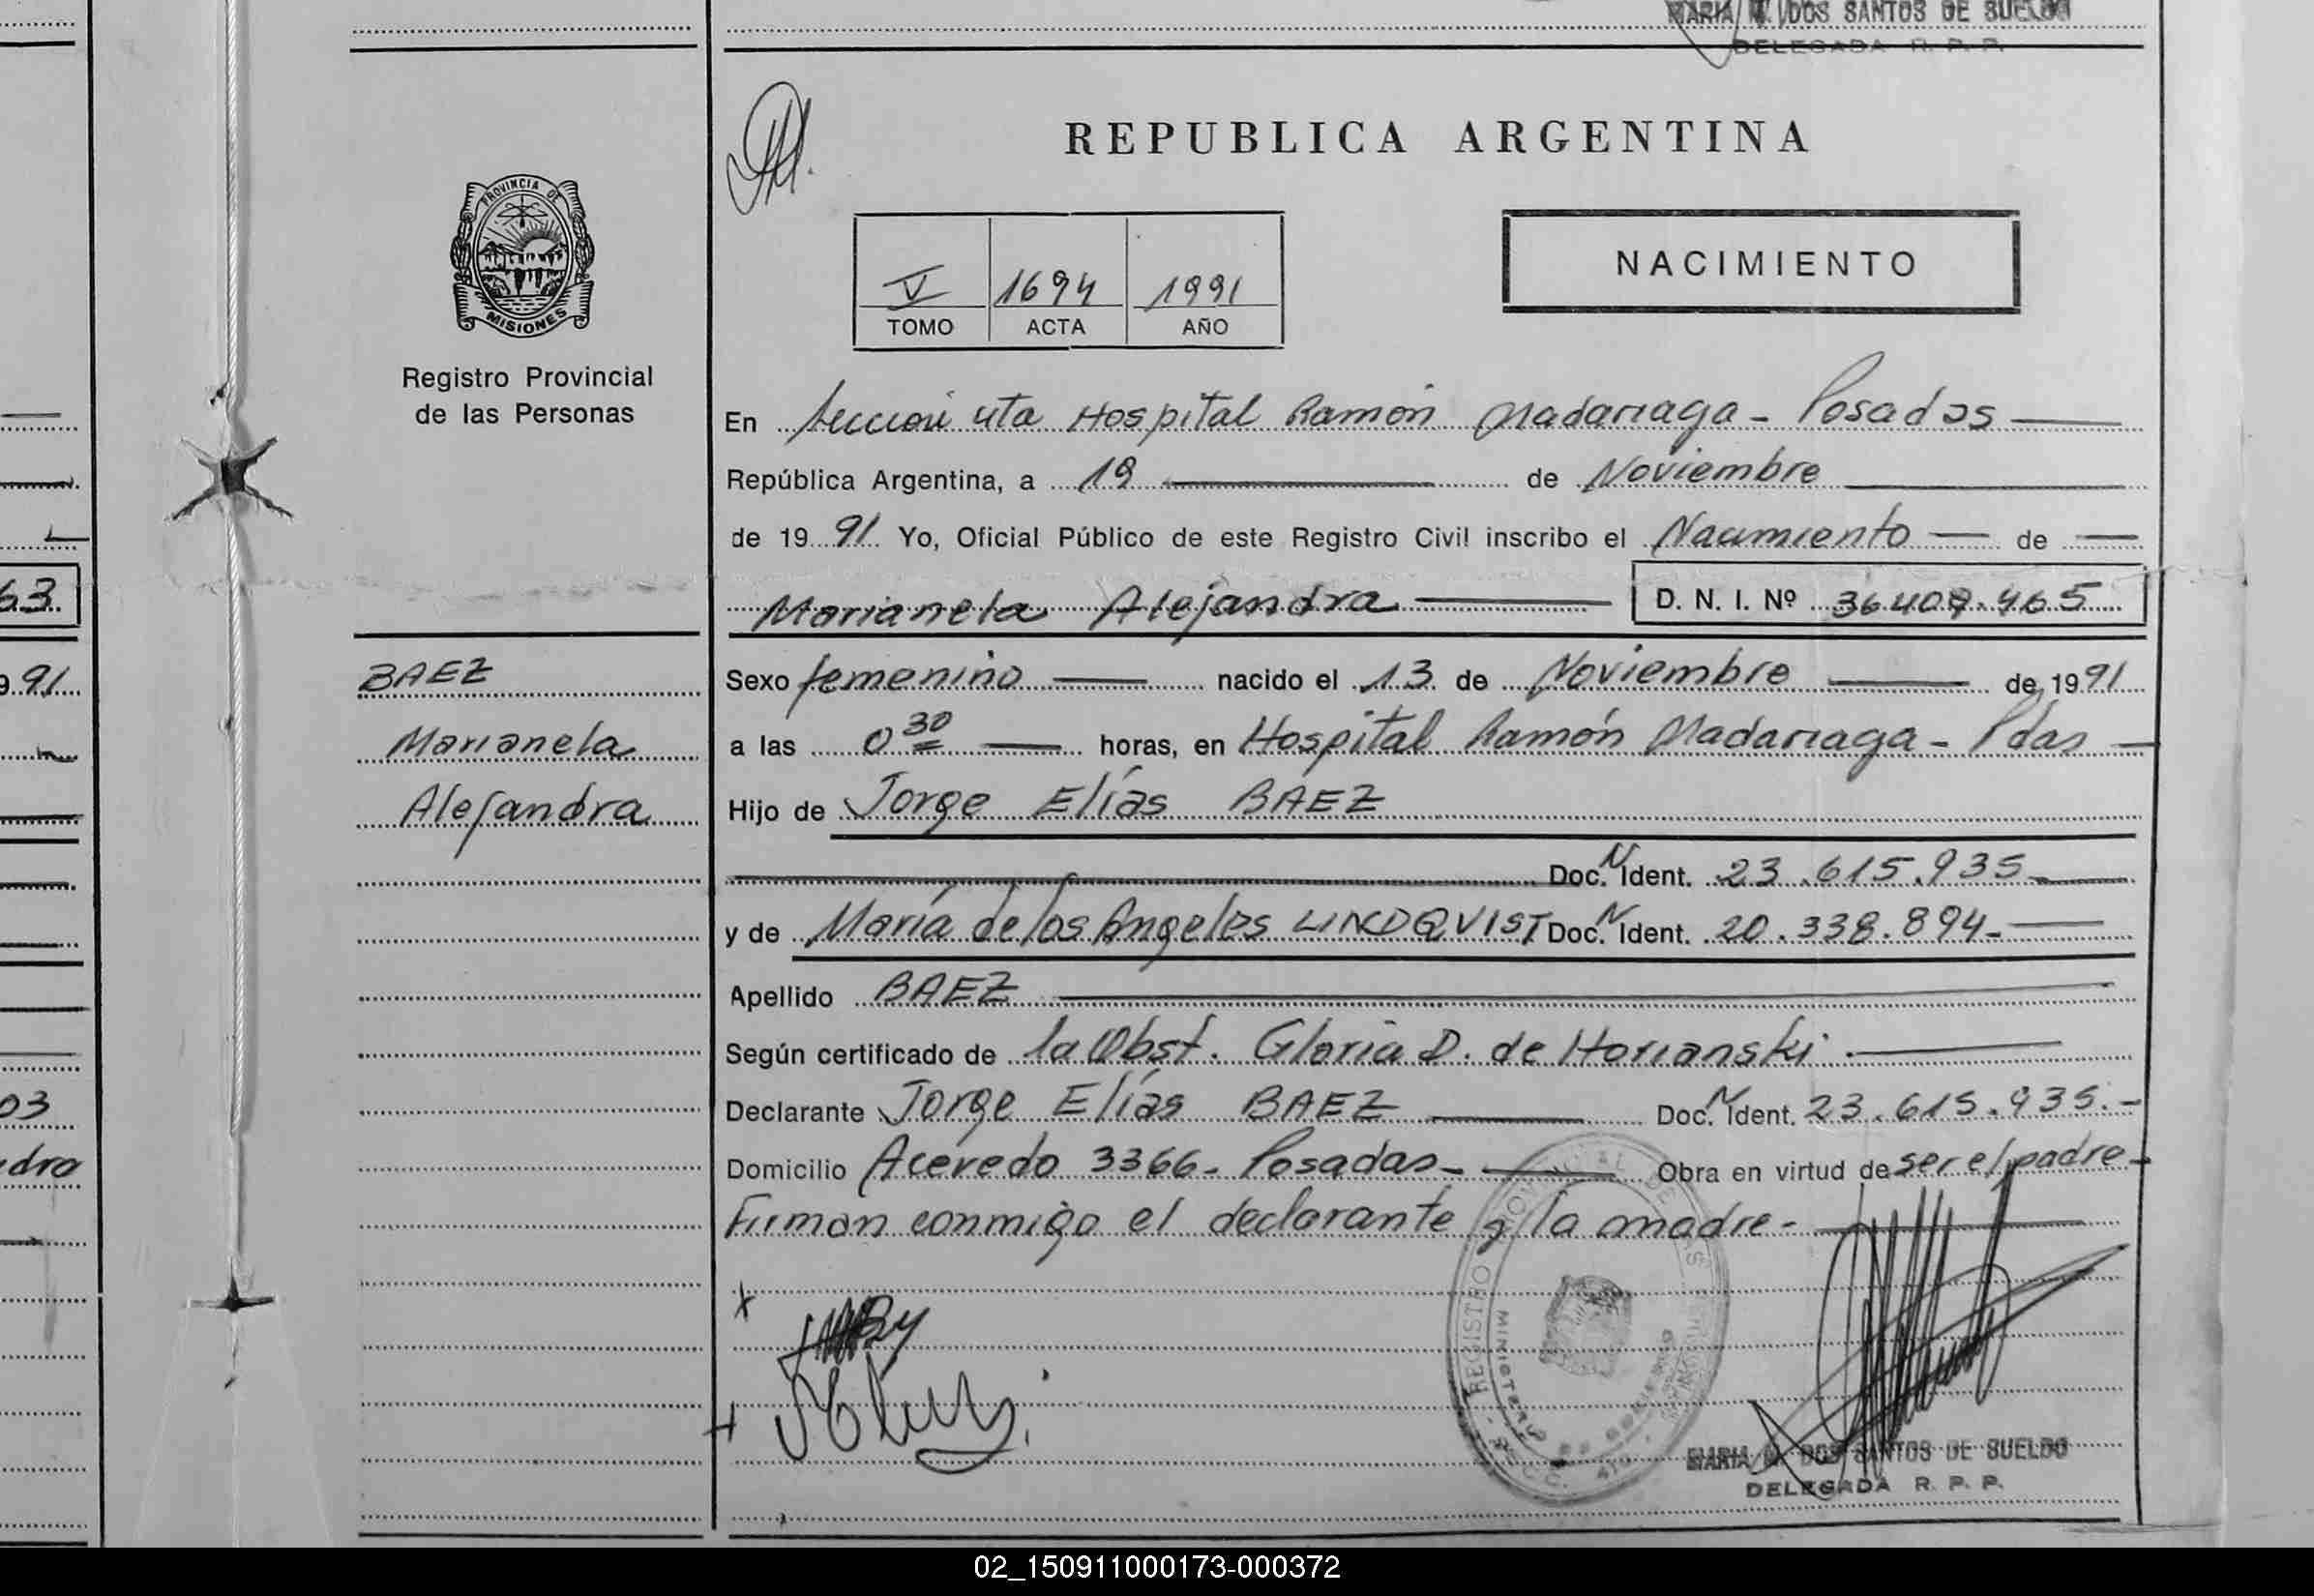 MARIA M. DOS SANTOS DE SUELDO
DELEGADA R. P. P.
REPUBLICA ARGENTINA
PROVINCIA DE
MISIONES
V 1694 1991
TOMO ACTA AÑO
NACIMIENTO
Registro Provincial
de las Personas
En Sección 4ta Hospital Ramón Madariaga - Posadas
República Argentina, a 19 de Noviembre
de 1991 Yo, Oficial Público de este Registro Civil inscribo el Nacimiento de
63
Marianela Alejandra D. N. I. Nº 36.409.465
991
BAEZ
Marianela
Alejandra
Sexo femenino nacido el 13 de Noviembre de 1991
a las 0 30 horas, en Hospital Ramón Madariaga - Pdas
Hijo de Jorge Elías BAEZ
Doc. N. Ident. 23.615.935
y de María de los Angeles LINDQVIST Doc. N. Ident. 20.338.894-
Apellido BAEZ
Según certificado de la Obst. Gloria D. de Horianski.
03
Declarante Jorge Elías BAEZ Doc. N. Ident. 23.615.935.-
dra
Domicilio Acevedo 3366- Posadas- Obra en virtud de ser el padre-
Firman conmigo el declarante y la madre-
REGISTRO PROVINCIAL DE LAS PERSONAS
MINISTERIO DE GOBIERNO
MARIA M. DOS SANTOS DE SUELDO
DELEGADA R. P. P.
02_150911000173-000372